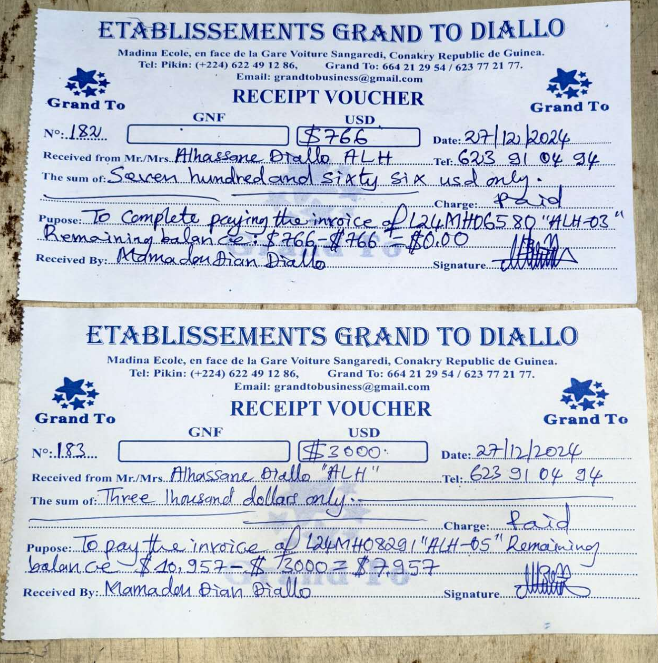 ETABLISSEMENTS GRAND TO DIALLO
Madina Ecole, en face de la Gare Voiture Sangaredi, Conakry Republic de Guinea.
Tel: Pikin: (+224) 622 49 12 86, Grand To: 664 21 29 54 / 623 77 21 77.
Email: grandtobusiness@gmail.com
Grand To RECEIPT VOUCHER Grand To
GNF USD
No: 182 $766 Date: 27/12/2024
Received from Mr./Mrs. Alhassane Diallo ALH Tel: 623 91 04 94
The sum of: Seven hundred and sixty six usd only.
Charge: Paid
Pupose: To Complete paying the invoice of L24MH06580 "ALH-03"
Remaining balance: $766-$766 = $0.00
Received By: Mamadou Dian Diallo Signature
Grand To
ETABLISSEMENTS GRAND TO DIALLO
Madina Ecole, en face de la Gare Voiture Sangaredi, Conakry Republic de Guinea.
Tel: Pikin: (+224) 622 49 12 86, Grand To: 664 21 29 54 / 623 77 21 77.
Email: grandtobusiness@gmail.com
Grand To RECEIPT VOUCHER Grand To
GNF USD
No: 183 $3000. Date: 27/12/2024
Received from Mr./Mrs. Alhassane Diallo "ALH" Tel: 623 91 04 94
The sum of: Three Thousand dollars only.
Charge: Paid
Pupose: To pay the invoice of L24MH08291 "ALH-05" Remaining
balance $10,957-$3000 = $7,957
Received By: Mamadou Dian Diallo Signature
Grand To